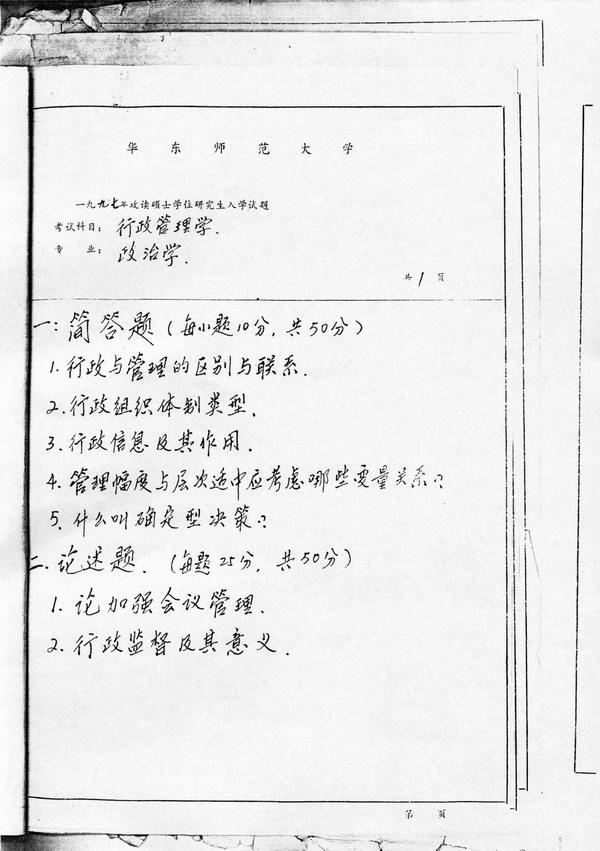 华东师范大学
一九九七年攻读硕士学位研究生入学试题
考试科目：行政管理学.
专业：政治学.
共1页
一：简答题（每小题10分，共50分）
1.行政与管理的区别与联系.
2.行政组织体制类型.
3.行政信息及其作用.
4.管理幅度与层次适中应考虑哪些变量关系？
5.什么叫确定型决策？
二.论述题.（每题25分，共50分）
1.论加强会议管理.
2.行政监督及其意义.
第 页